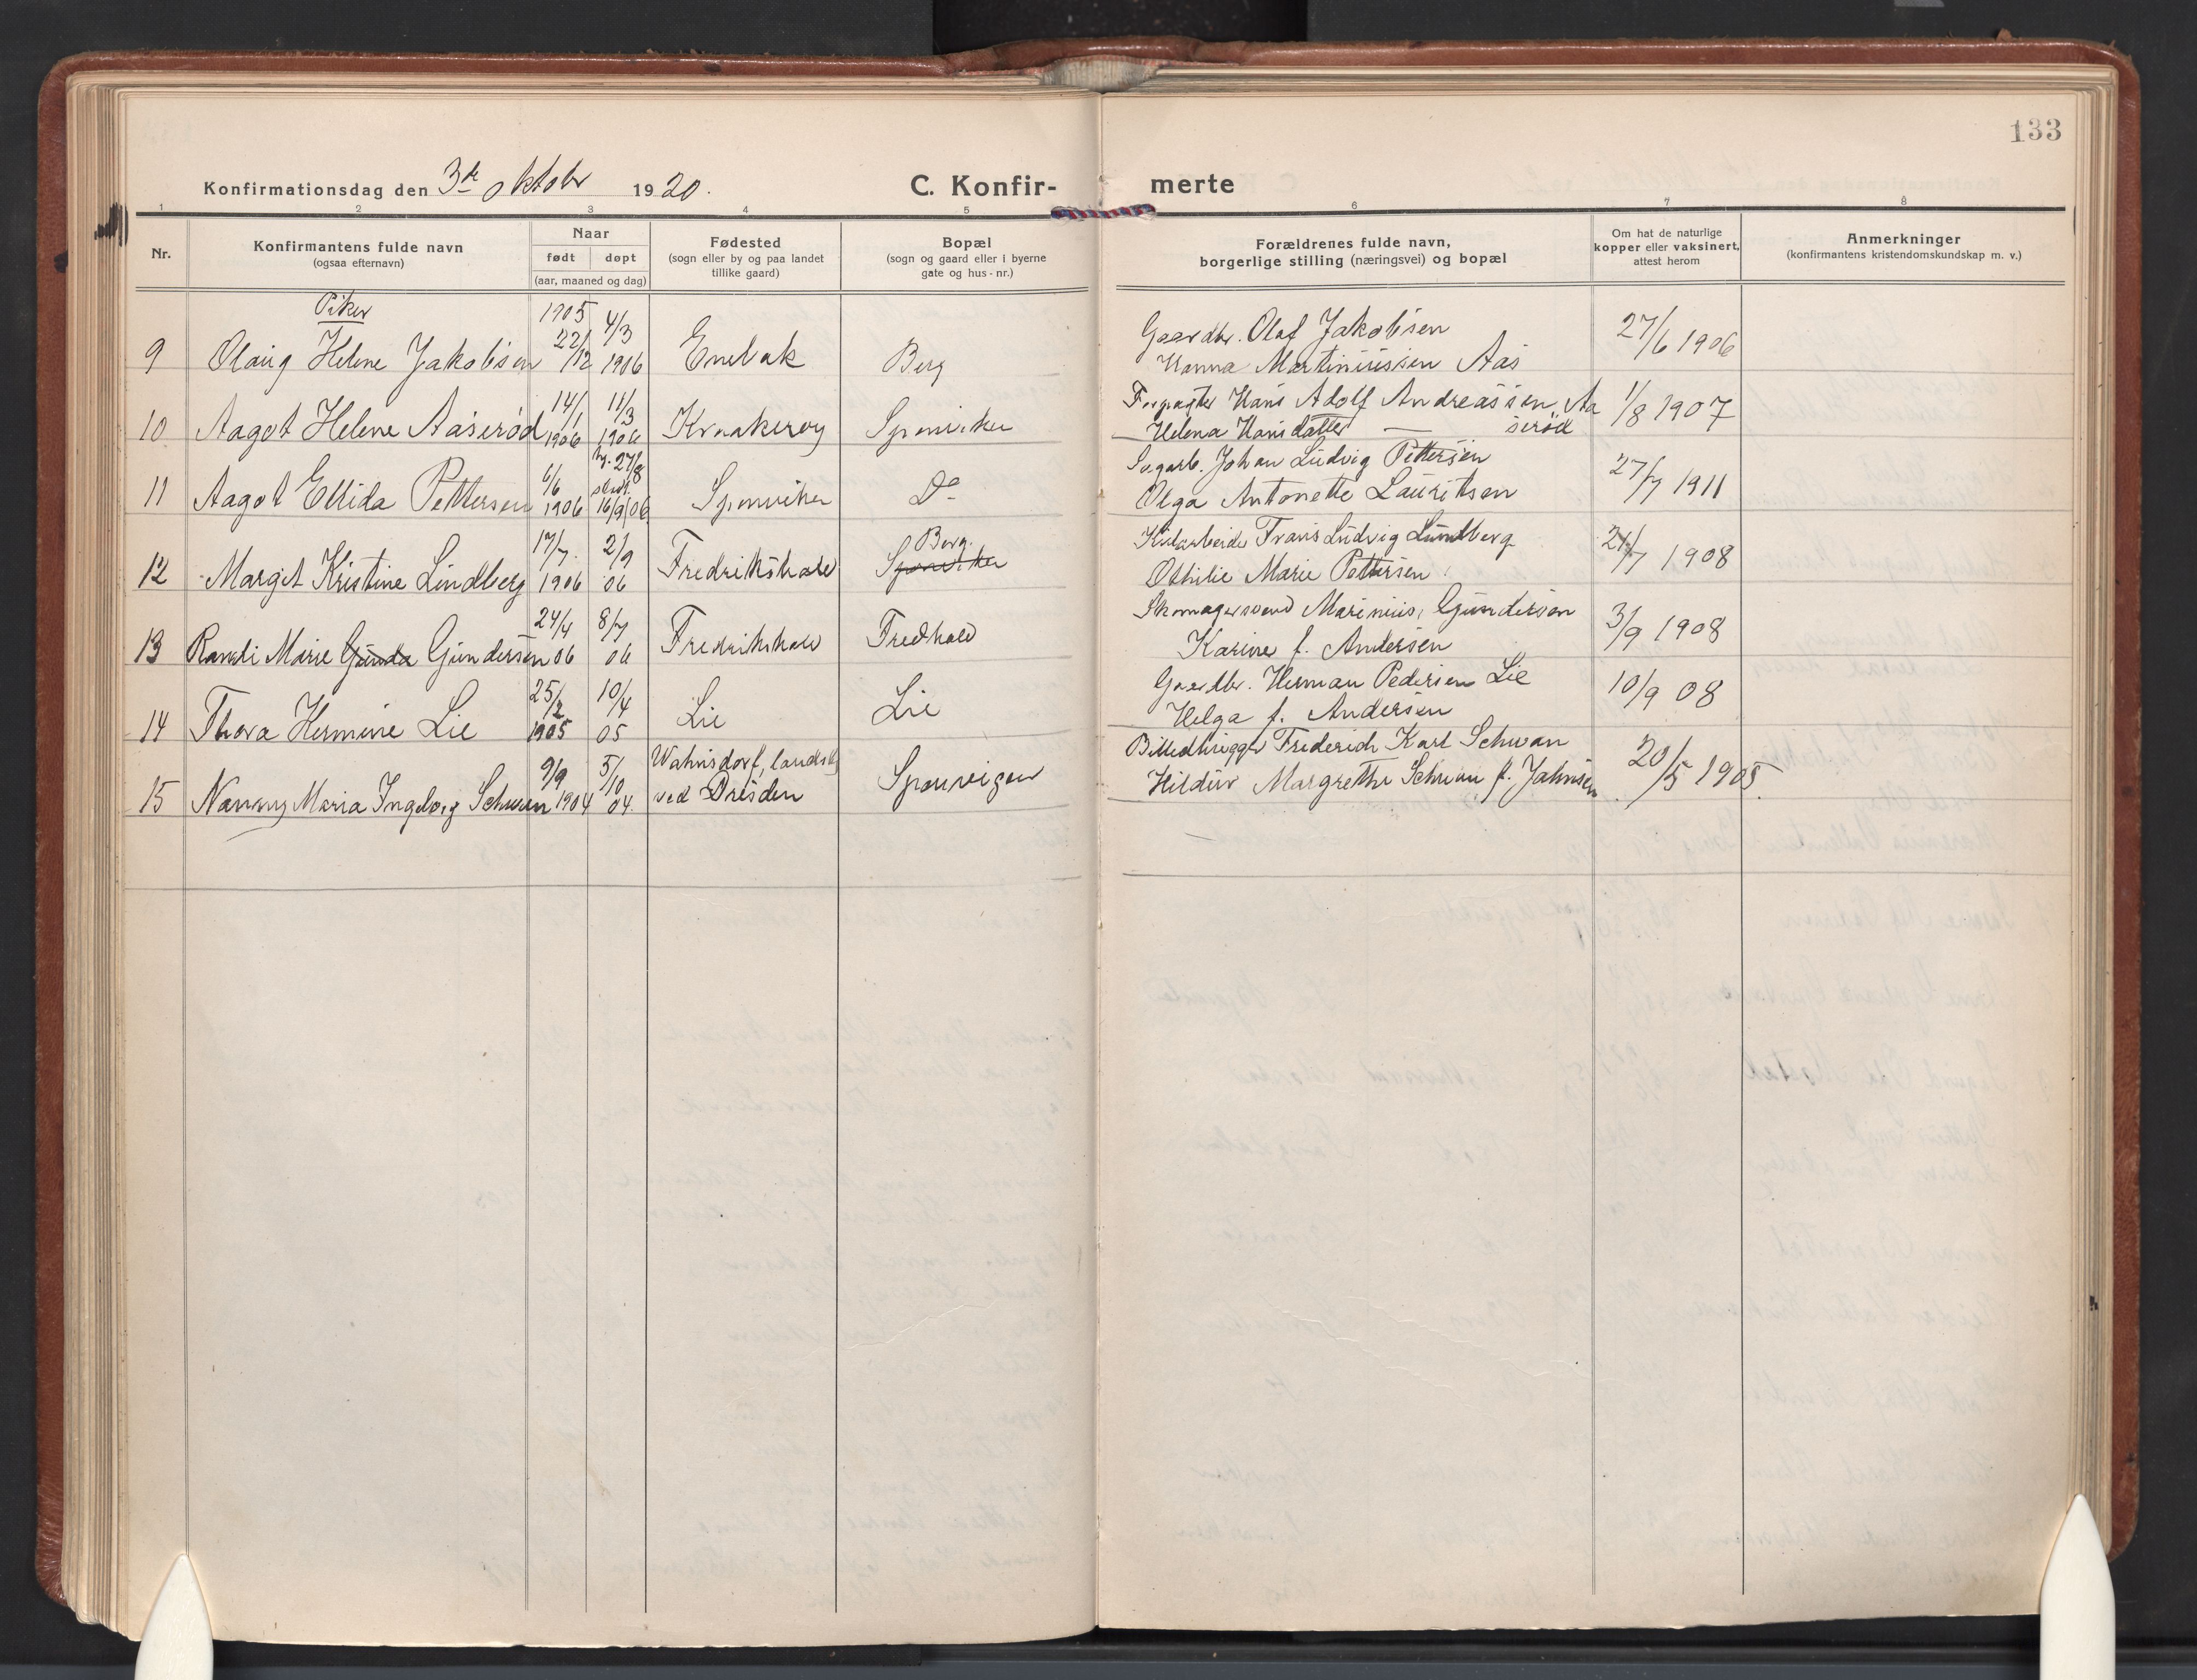 133
Konfirmationsdag den 3de oktober 1920.
C. Konfirmerte
1 2 3 4 5 6 7 8
Nr.
Konfirmantens fulde navn
(ogsaa efternavn)
Naar
født døpt
(aar, maaned og dag)
Fødested
(sogn eller by og paa landet
tillike gaard)
Bopæl
(sogn og gaard eller i byerne
gate og hus-nr.)
Forældrenes fulde navn,
borgerlige stilling (næringsvei) og bopæl
Om hat de naturlige
kopper eller vaksinert,
attest herom
Anmerkninger
(konfirmantens kristendomskundskap m. v.)
Piker
9 Olaug Helene Jakobsen 1905 22/12 4/3 1906 Enebak Berg Gaardbr. Olaf Jakobsen 27/6 1906
Hanna Martiniussen Aas
10 Aagot Helene Aaserød 14/1 1906 11/3 1906 Kraakerøy Sponviken Forpagter Hans Adolf Andreassen Aa 1/8 1907
Helena Hansdatter — serød
11 Aagot Elida Pettersen 6/6 1906 hj. 27/8 stadf. 16/9 06 Sponviken Do Sagarb. Johan Ludvig Pettersen 27/7 1911
Olga Antonette Lauritsen
12 Margit Kristine Lindberg 17/7. 1906 2/9 06 Fredrikshald Berg. Sponviken Frans Ludvig Lundberg 21/7 1908
Othilie Marie Pettersen
13 Randi Marie Gunda Gundersen 24/4 06 8/7 06 Fredrikshald Fredhald Skomagersvend Marinius Gundersen 3/9 1908
Karine f. Andersen
14 Thora Hermine Lie 25/2 1905 10/4 05 Lie Lie Gaardbr. Herman Pedersen Lie 10/9 08
Helga f. Andersen
15 Nanny Maria Ingeborg Schwan 9/9 1904 5/10 04. Wahnsdorf, landsb. Sponvigen Billedhugger Frederich Karl Schwan 20/5 1905.
ved Dresden Hildur Margrethe Schwan f. Jahnsen